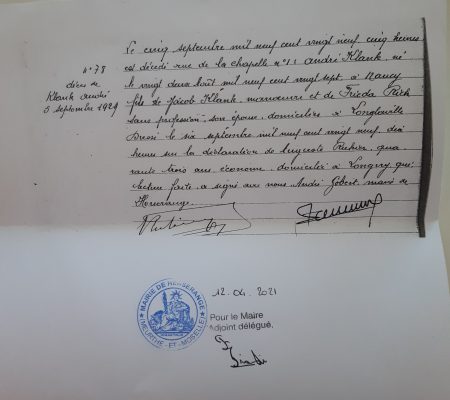 n° 78
décès de
Klank André
5 septembre 1929
Le cinq septembre mil neuf cent vingt neuf cinq heures
est décédé rue de la chapelle n° 11 André Klank, né
le vingt deux août mil neuf cent vingt sept, à Nancy
fils de Jacob Klank, manœuvre et de Frieda
sans profession, son épouse, domiciliés à Longlaville
Dressé le six septembre mil neuf cent vingt neuf, dix
heures sur la déclaration de Auguste qua
rante trois ans, économe, domicilié à Longwy qui,
lecture faite, a signé avec nous André Gobert, maire de
Herserange.
MAIRIE DE HERSERANGE
(MEURTHE-ET-MOSELLE)
12.04.2021
Pour le Maire
Adjoint délégué,